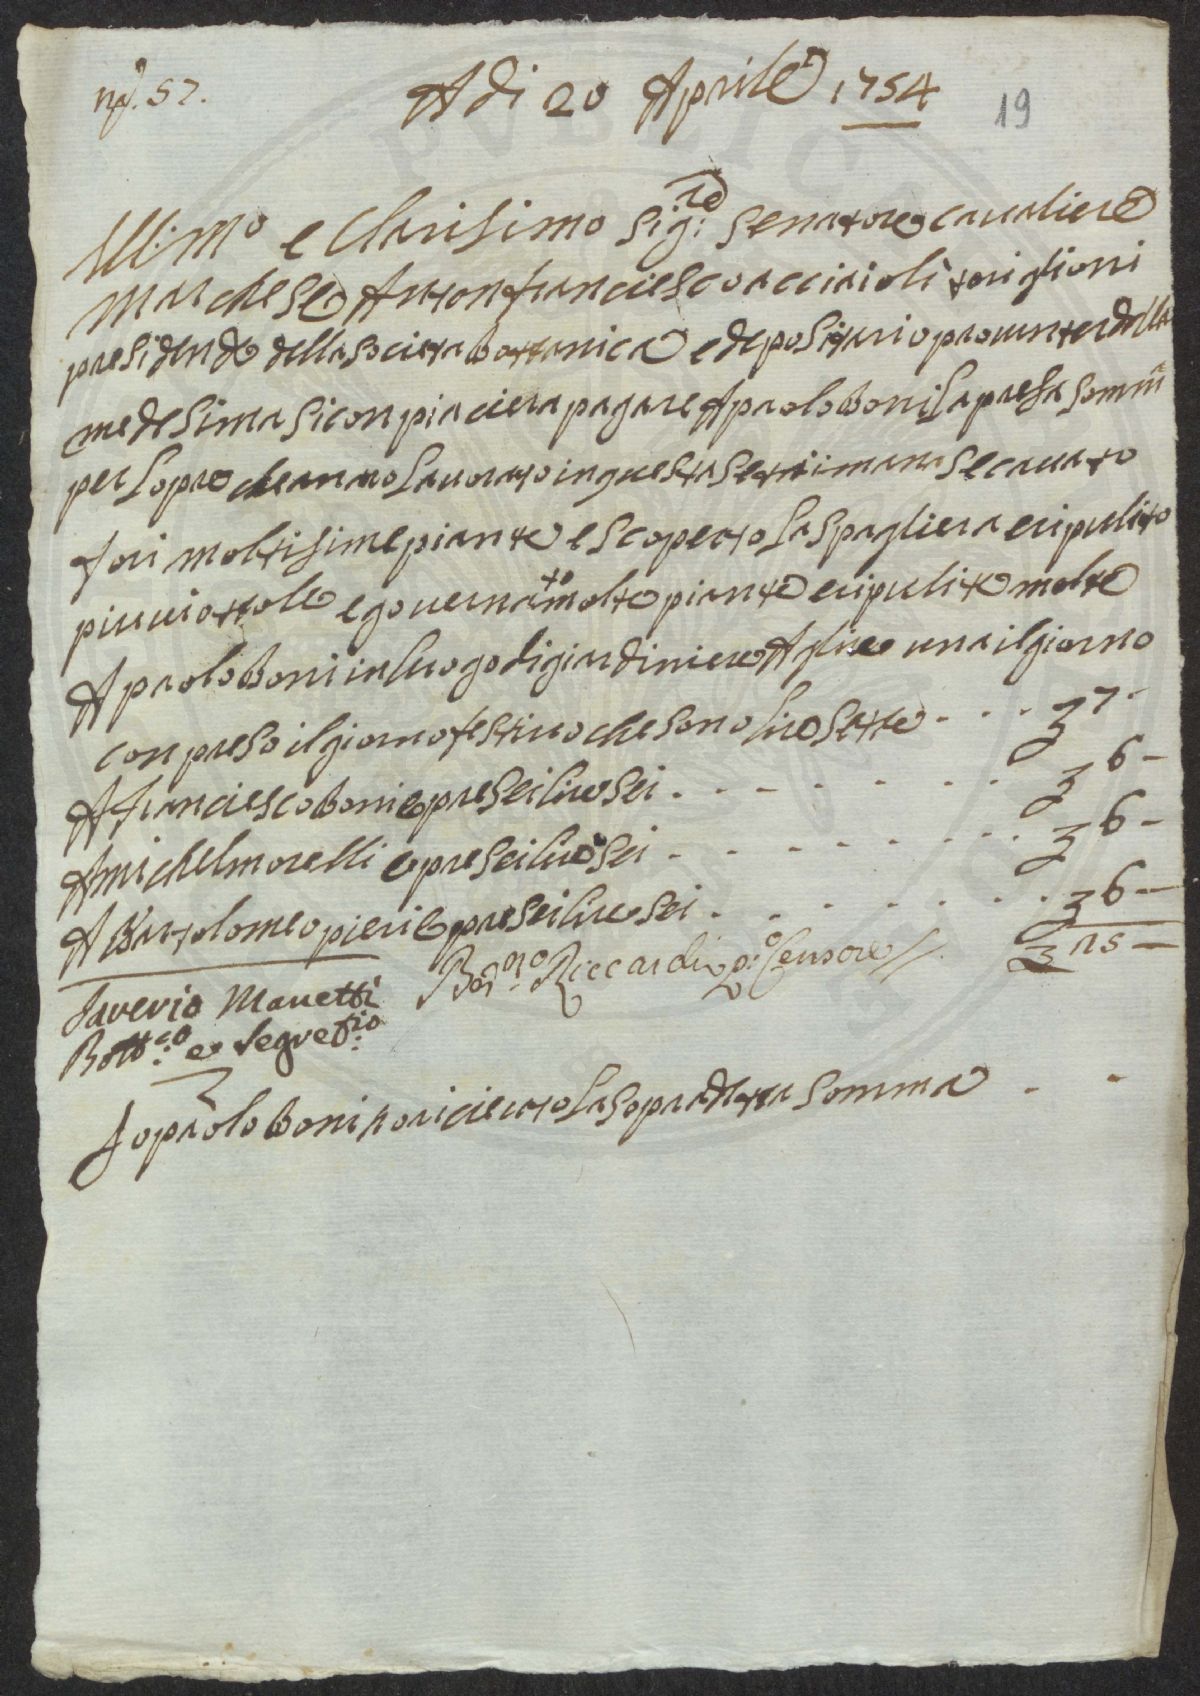 nº. 57.
A di 20 Aprile 1754
19
Ill:mo e Clarisimo Sig:re Senatore e cavaliere
marchese Anton franciesco acciaioli toriglioni
presidende della societa Bottanica e depositario pro interi della
medesima si conpiaciera pagare A paolo Boni la presa somma
per lopre che anno lavorato in questa settimana se cavato
fori moltisime piante e scoperto la spagliera e ripulito
piu viottole e governato molte piante e ripulite molte
A paolo Boni in luogo di giardiniere A lire una il giorno
conpreso il giorno festivo che sono lire sette - - - £ 7 -
A franciesco Boni opre sei lire sei . - - - - - - £ 6 -
A michel morelli opre sei lire sei . - - - - - - £ 6 -
A Bartolomeo pieri opre sei lire sei . - - - - - - £ 6 -
£ 25 -
Saverio Manetti
Bern:no Riccardi p:o Censore
Bott:co e Segret:rio
Io paolo Boni o riceuto la sopradetta somma - -
PVBLICA